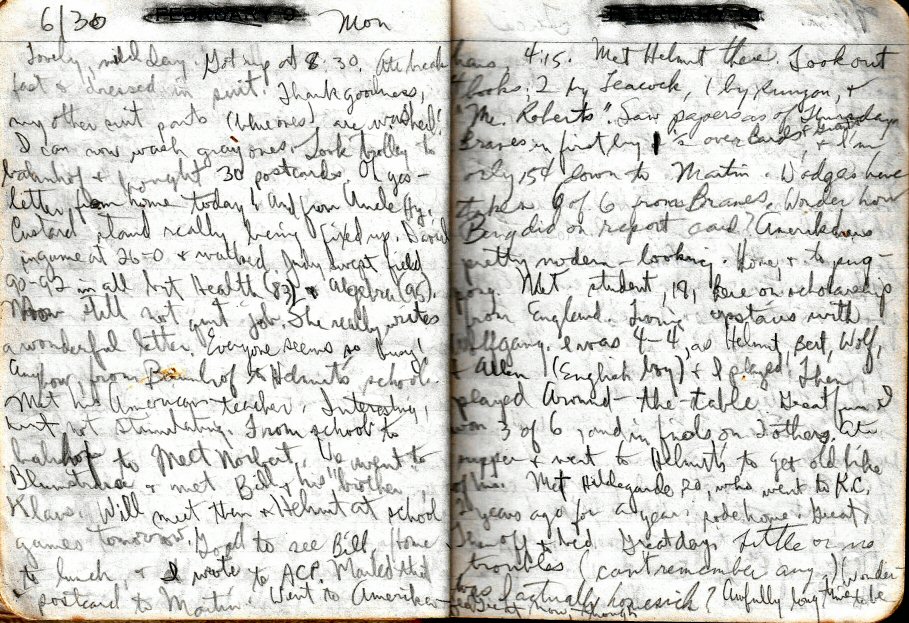 6/30 FEBRUARY Mon
Lovely, mild day. Got up at 8:30. Ate break
fast & dressed in suit. Thank goodness,
my other suit pants (blue ones) are washed!
I can now wash gray ones. Took trolley to
bahnhof & bought 30 postcards. Of yes-
letter from home today! And from Uncle Hy.
Custard stand really being fixed up. David
in game at 26-0 & walked. Judy swept field
90-92 in all but Health (83) & Algebra (95).
Mom still not quit job. She really writes
a wonderful letter. Everyone seems so busy!
Anyhow, from Bahnhof to Helmut's school.
Met his American teacher. Interesting,
but not stimulating. From school to
bahnhof to meet Norbert. We went to
& met Bill & his "brother"
Klaus. Will meet them & Helmut at school
games tomorrow. Good to see Bill. Home
to lunch, & I wrote to ACP. Mailed that
& postcard to Martin. Went to Amerika-
haus 4:15. Met Helmut there. Took out
4 books, 2 by Leacock, 1 by Runyon, &
"Mr. Roberts". Saw papers as of Thursday
Braves in first by 1's over Cards & Giants, & I'm
only 15¢ down to Martin. Dodgers have
taken 6 of 6 from Braves. Wonder how
Berg did on report card? Amerikahaus
pretty modern-looking. Home, & to ping-
pong. Met student, 18, here on scholarship
from England. Living upstairs with
Wolfgang. I was 4-4, as Helmut, Bert, Wolf,
& Allen (English boy) & I played. Then
played Around-the-table. Great fun. I
won 3 of 6, and in finals on 2 others. Ate
supper & went to Helmut's to get old bike
of his. Met Hildegarde, 20, who went to K.C.
2 years ago for a year. Rode home. Great!
Then off to bed. Great day. Little or no
troubles (can't remember any.) Wonder-
was I actually homesick? Awfully long time to be